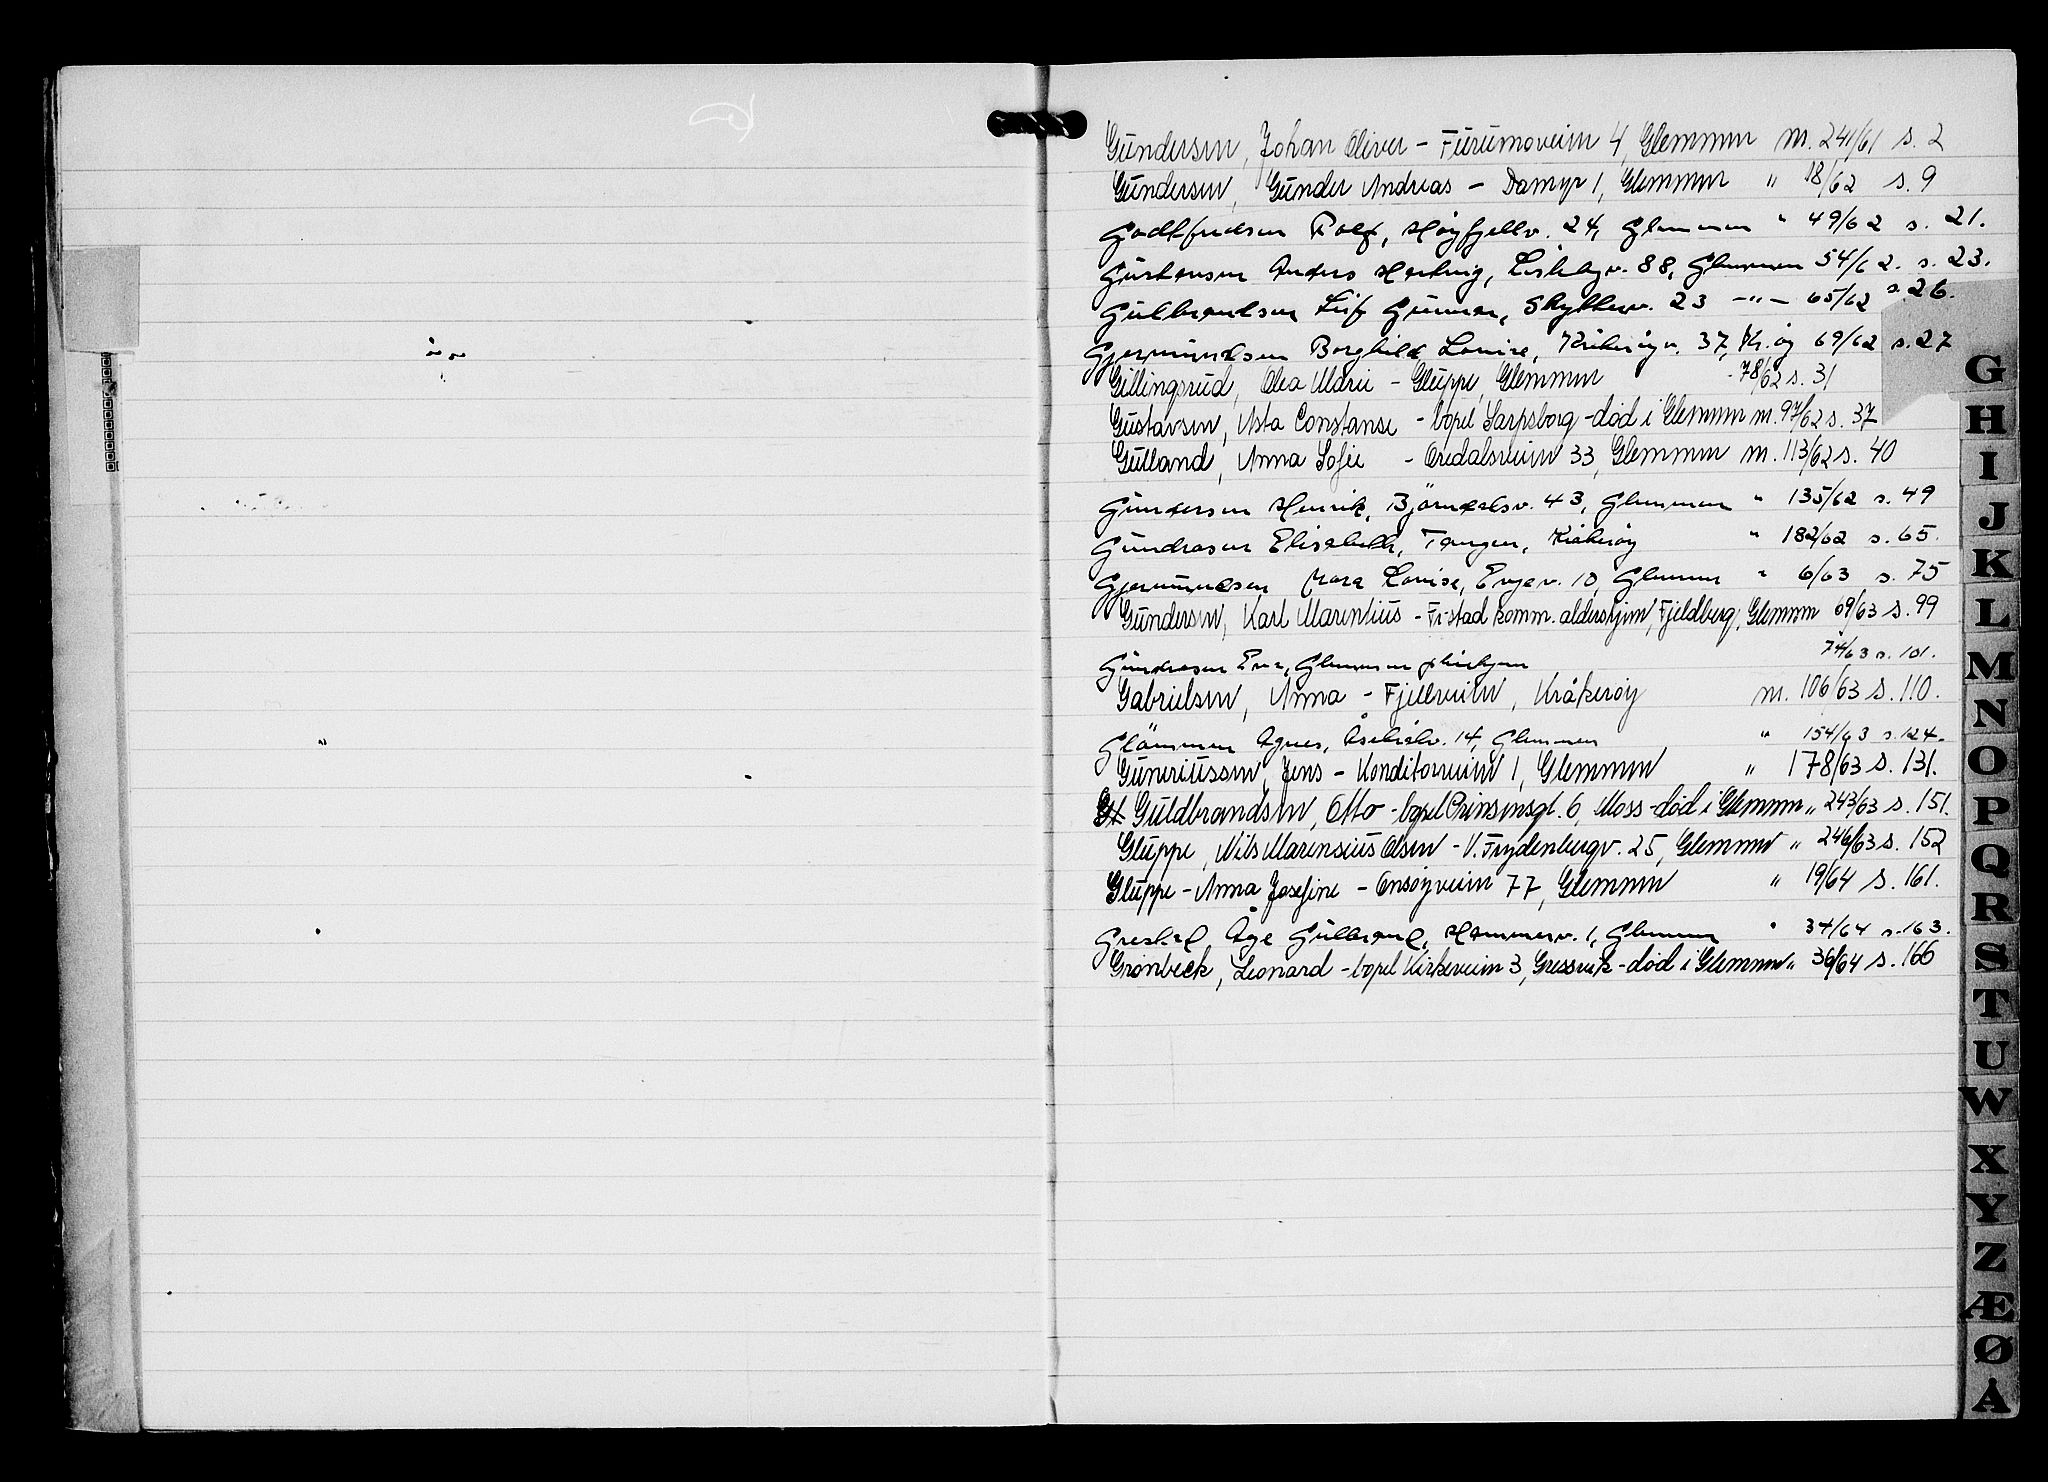 Gundersen, Johan Oliver - Furumoveien 4, Glemmen nr. 241/61 s. 2
Gundersen, Gunder Andreas - Damyr 1, Glemmen " 18/62 s. 9
Godtfredsen Rolf, Høyfjellv. 24, Glemmen " 49/62 s. 21.
Gustavsen Anders Hartvig, Lislebyv. 88, Glemmen 54/62. s. 23.
Gulbrandsen Leif Gunnar, Skytterv. 23 -"- 65/62 s. 26.
Gjermundsen Borghild Louise, Kråkerøyv. 37, Kr.øy 69/62 s. 27
Gillingsrud, Olea Marie - Gluppe, Glemmen 78/62 s. 31
Gustavsen, Asta Constanse - bopel Sarpsborg - død i Glemmen nr. 97/62 s. 37
Gulland, Anna Sofie - Oredalsveien 33, Glemmen nr. 113/62 s. 40
Gundersen Henrik, Bjørndalsv. 43, Glemmen " 135/62 s. 49
Gundrosen Elisabeth, Tangen, Kråkerøy " 182/62 s. 65.
Gjermundsen Louise, Engev. 10, Glemmen " 6/63 s. 75
Gundersen, Karl Marentius - Fr-stad komm. aldershjem, Fjeldberg, Glemmen 69/63 s. 99
Gundrosen Eva, Glemmen pleiehjem 74/63 s. 101.
Gabrielsen, Anna - Fjellveien, Kråkerøy nr. 106/63 s. 110.
Glommen Agnes, 14, Glemmen " 154/63 s. 124.
Guneriussen, Jens - Konditorveien 1, Glemmen " 178/63 s. 131.
Guldbrandsen, Otto - bopel Prinsensgt. 6, Moss - død i Glemmen " 243/63 s. 151.
Gluppe, Nils Marensius Olsen - V. Frydenbergv. 25, Glemmen " 246/63 s. 152
Gluppe - Anna Josefine - Onsøyveien 77, Glemmen " 19/64 s. 161.
Greskel Åge Gulbrand, Hammerv. 1, Glemmen " 34/64 s. 163.
Grønbeck, Leonard - bopel Kirkeveien 3, Gressvik - død i Glemmen " 36/64 s. 166
G
H
I
J
K
L
M
N
O
P
Q
R
S
T
U
W
X
Y
Z
Æ
Ø
A